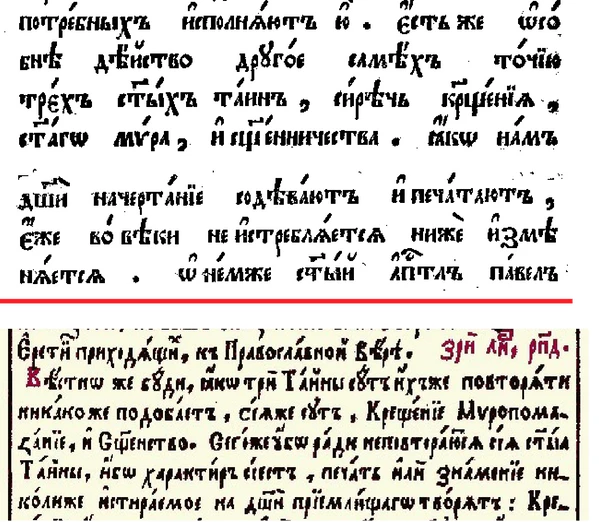 потре́бныхъ и҆сполнѧ́ютъ ю҆ . Є҆́сть же ѡ҆со́
бнѣ дѣ́йство друго́е самѣ́хъ то́чїю
тре́хъ ст҃ы́хъ та́инъ , си́рѣчь крⷭ҇ще́нїѧ ,
ст҃а́гѡ мѵ́ра , и҆ сщ҃е́нничества . ꙗ҆́кѡ на́мъ
дш҃и́ начерта́нїе содѣва́ютъ и҆ печа́таютъ ,
є҆́же во вѣ́ки не и҆стреблѧ́етсѧ нижѐ и҆змѣ
нѧ́етсѧ . ѡ҆ не́мже ст҃ы́й а҆пⷭ҇тлъ па́велъ
Є҆рети́ приходѧ́щїи , къ Правосла́вной Вѣ́рѣ . Зрѝ ли́ , рп҃д .
Вѣ́стиѡ же бꙋ́ди , ꙗ҆́кѡ трѝ Та́йны сꙋ́ть и҆́хъже повторѧ́ти
ника́коже подоба́етъ , сїѧ́же сꙋ́ть , Креще́нїе Мѵропома-
за́нїе , и҆ Сщ҃е́нство . Сегѡ́же ꙋ҆́бѡ ра́ди неповторѧ́ютсѧ сїѧ̑ ст҃ы́ѧ
Та́йны , и҆́бѡ хара́ктиръ сі́есть , печа́ть и҆лѝ зна́менїе ни-
ко́лиже и҆стира́емое на дш҃и́ прїе́млющагѡ творѧ́тъ : Кре-